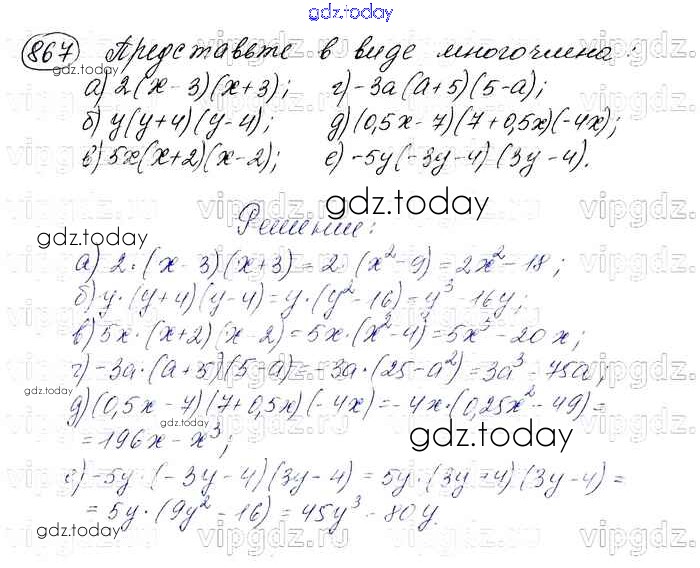 gdz.today
867 Представьте в виде многочлена:
а) 2(x-3)(x+3); г) -3a(a+5)(5-a);
б) y(y+4)(y-4); д) (0,5x-7)(7+0,5x)(-4x);
в) 5x(x+2)(x-2); е) -5y(-3y-4)(3y-4).
gdz.today
Решение:
gdz.today
gdz.today
а) 2·(x-3)(x+3) = 2·(x²-9) = 2x²-18;
б) y·(y+4)(y-4) = y·(y²-16) = y³-16y;
в) 5x·(x+2)(x-2) = 5x·(x²-4) = 5x³-20x;
г) -3a·(a+5)(5-a) = -3a·(25-a²) = 3a³-75a;
gdz.today
д) (0,5x-7)(7+0,5x)(-4x) = -4x·(0,25x²-49) =
= 196x-x³;
gdz.today
е) -5y·(-3y-4)(3y-4) = 5y·(3y+4)(3y-4) =
= 5y·(9y²-16) = 45y³-80y.
gdz.today
vipgdz.ru